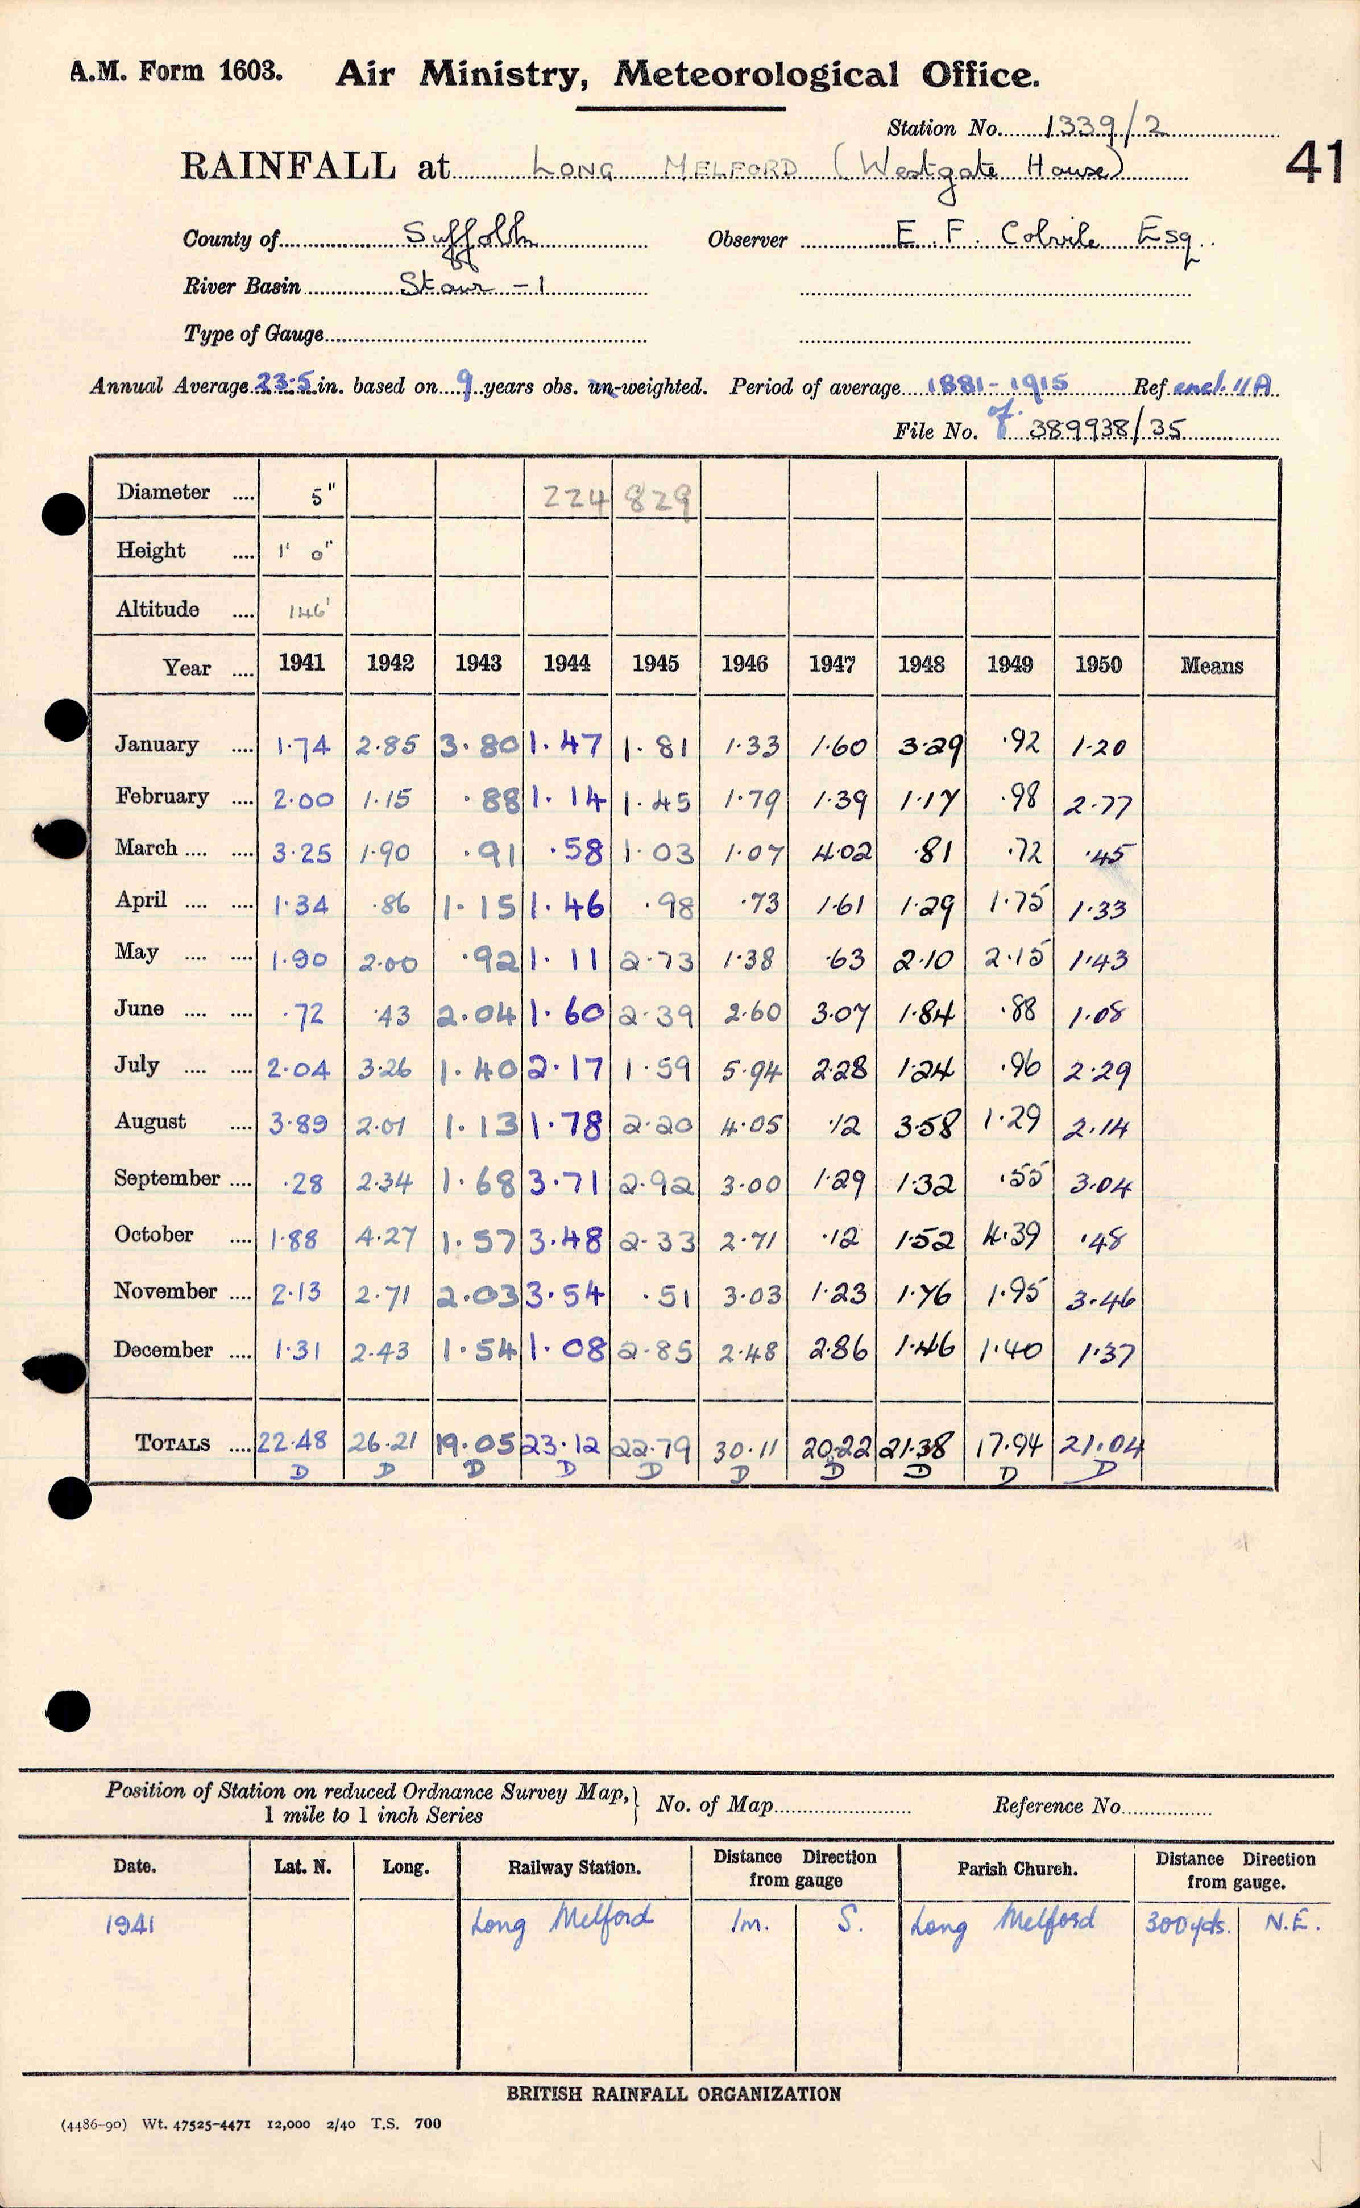 A.M. Form 1603. Air Ministry, Meteorological Office.
Station No. 1339/2
RAINFALL at LONG MELFORD (Westgate House) 41
County of Suffolk Observer E. F. Colvile Esq.
River Basin Stour - 1
Type of Gauge
Annual Average 23.5 in. based on 9 years obs. un-weighted. Period of average 1881-1915 Ref encl. 11A
File No. of 389938/35
Diameter .... 5" 224 829
Height .... 1' 0"
Altitude .... 146'
Year .... 1941 1942 1943 1944 1945 1946 1947 1948 1949 1950 Means
January .... 1.74 2.85 3.80 1.47 1.81 1.33 1.60 3.29 .92 1.20
February .... 2.00 1.15 .88 1.14 1.45 1.79 1.39 1.17 .98 2.77
March .... .... 3.25 1.90 .91 .58 1.03 1.07 4.02 .81 .72 .45
April .... .... 1.34 .86 1.15 1.46 .98 .73 1.61 1.29 1.75 1.33
May .... .... 1.90 2.00 .92 1.11 2.73 1.38 .63 2.10 2.15 1.43
June .... .... .72 .43 2.04 1.60 2.39 2.60 3.07 1.84 .88 1.08
July .... .... 2.04 3.26 1.40 2.17 1.59 5.94 2.28 1.24 .96 2.29
August .... 3.89 2.01 1.13 1.78 2.20 4.05 .12 3.58 1.29 2.14
September .... .28 2.34 1.68 3.71 2.92 3.00 1.29 1.32 .55 3.04
October .... 1.88 4.27 1.57 3.48 2.33 2.71 .12 1.52 4.39 .48
November .... 2.13 2.71 2.03 3.54 .51 3.03 1.23 1.76 1.95 3.46
December .... 1.31 2.43 1.54 1.08 2.85 2.48 2.86 1.46 1.40 1.37
TOTALS .... 22.48 26.21 19.05 23.12 22.79 30.11 20.22 21.38 17.94 21.04
D D D D D D D D D D
Position of Station on reduced Ordnance Survey Map, 1 mile to 1 inch Series } No. of Map Reference No.
Date. Lat. N. Long. Railway Station. Distance Direction from gauge Parish Church. Distance Direction from gauge.
1941 Long Melford 1m. S. Long Melford 300yds. N.E.
BRITISH RAINFALL ORGANIZATION
(4486-90) Wt. 47525-4471 12,000 2/40 T.S. 700